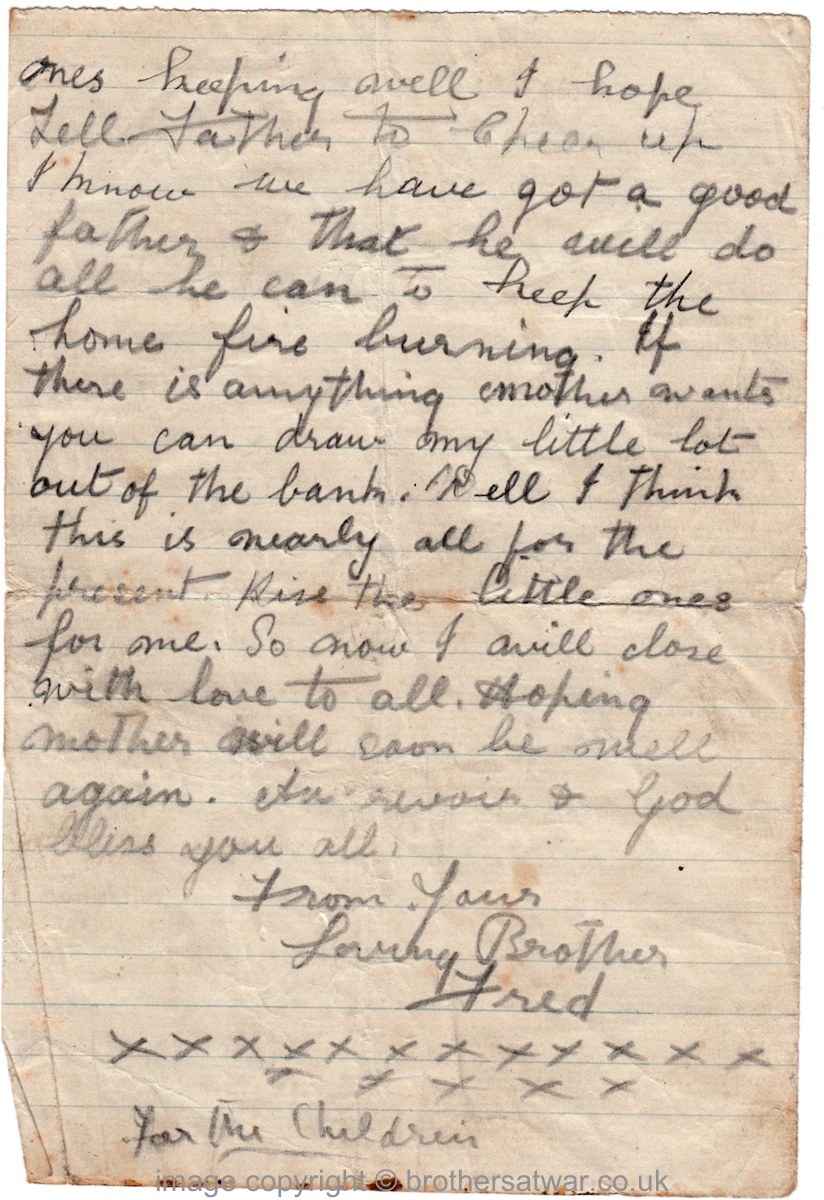 ones keeping well I hope
Tell Father to Cheer up
I know we have got a good
father & that he will do
all he can to keep the
home fire burning. If
there is anything mother wants
you can draw my little lot
out of the bank. Well I think
this is nearly all for the
present. Kiss the little ones
for me. So now I will close
with love to all. Hoping
mother will soon be well
again. Au revoir & God
bless you all.
From Your
Loving Brother
Fred
x x x x x x x x x x x x
x x x x x
For the Children
image copyright © brothersatwar.co.uk